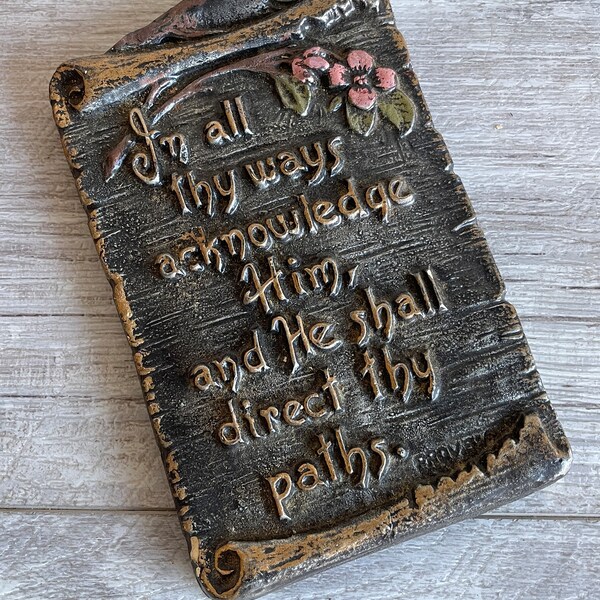 In all
thy ways
acknowledge
Him,
and He shall
direct thy
paths.